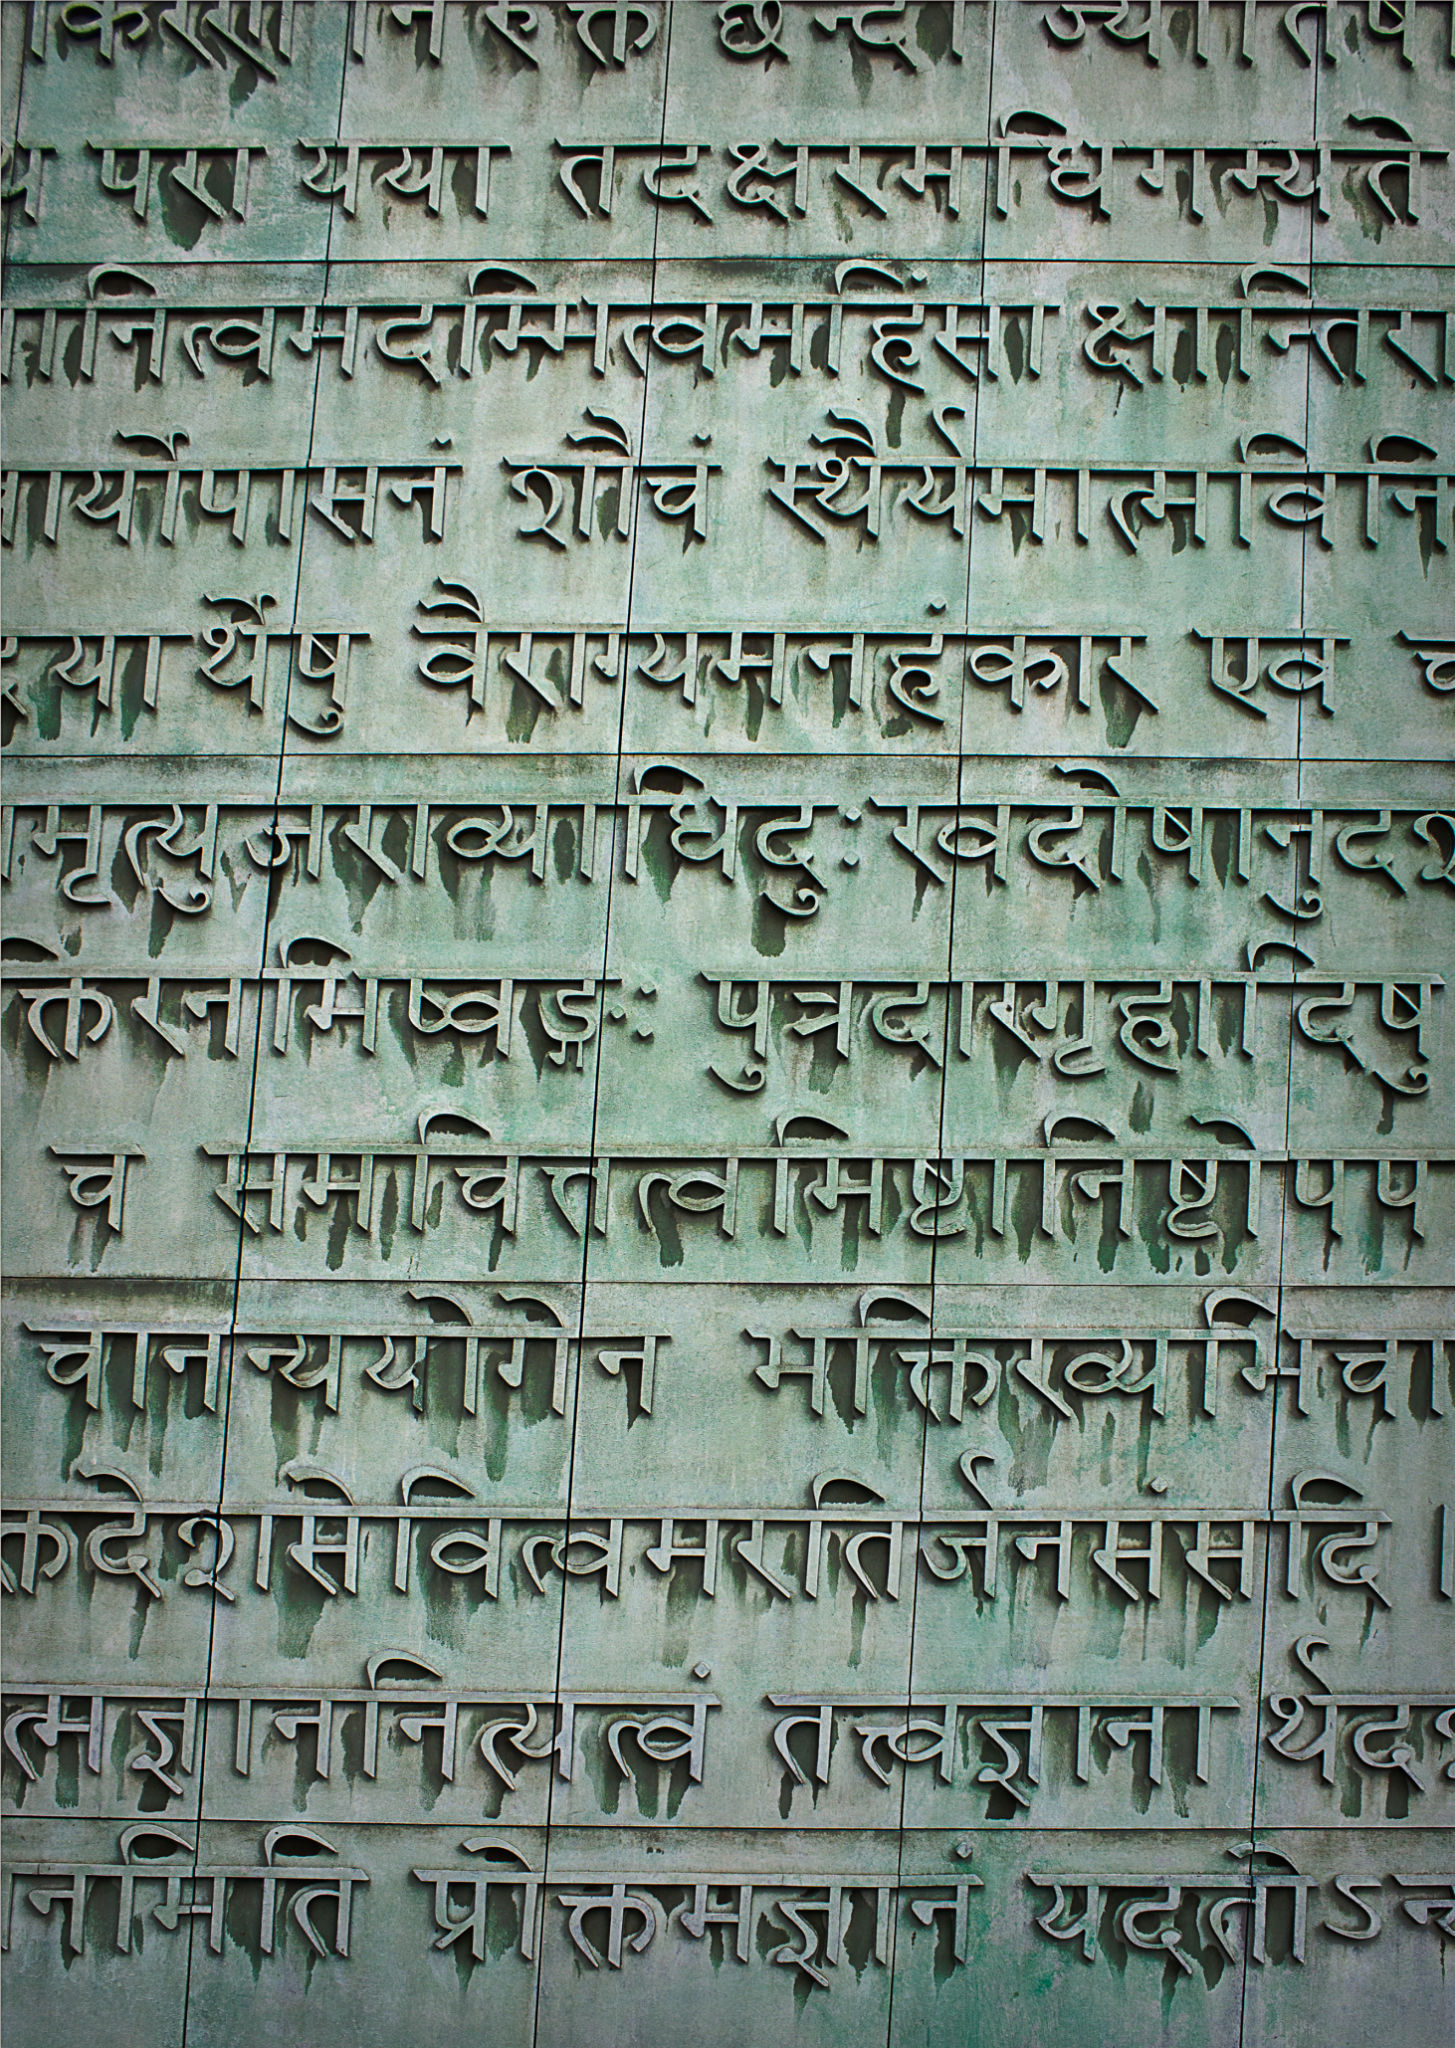 करण निरुक्त छन्दो ज्योतिष
परा यया तदक्षरमधिगम्यते
ानित्वमदम्मित्वमहिंसा क्षान्तिरा
ार्योपासनं शौचं स्थैर्यमात्मविनि
यार्थेषु वैराग्यमनहंकार एव च
मृत्युजराव्याधिदुःखदोषानुदश
क्तिरनभिष्वङ्गः पुत्रदारगृहादिषु
च समचित्तत्वमिष्टानिष्टोपप
चानन्ययोगेन भक्तिरव्यभिचा
क्तदेशसेवित्वमरतिर्जनसंसदि ।
त्मज्ञाननित्यत्वं तत्त्वज्ञानार्थद
नमिति प्रोक्तमज्ञानं यदतोऽन